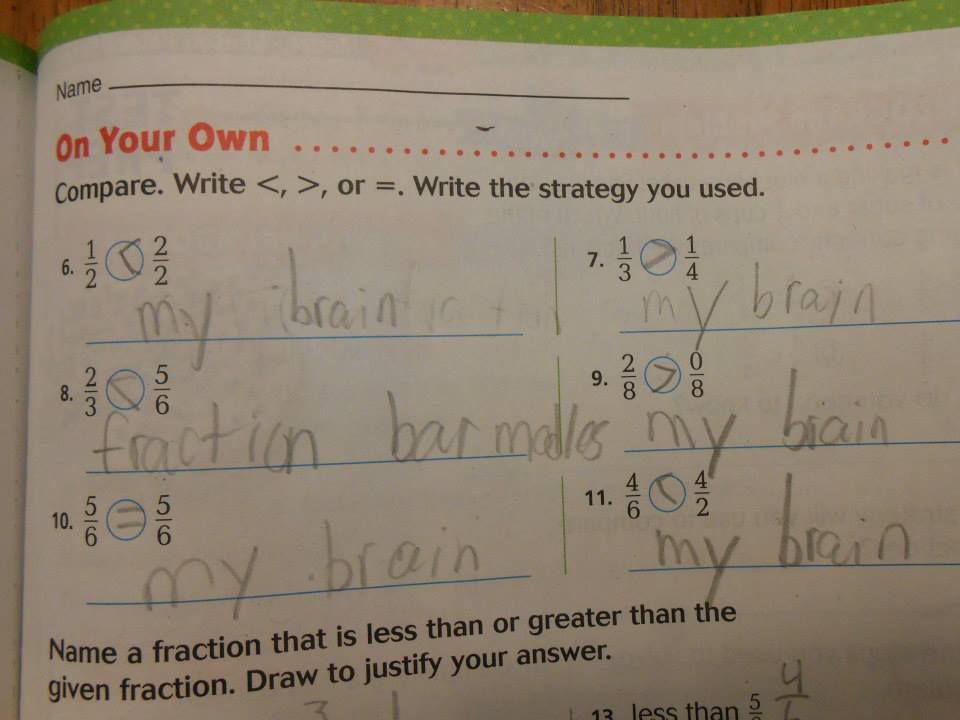 Name
On Your Own
Compare. Write <, >, or =. Write the strategy you used.
6. 1/2 < 2/2
my brain
7. 1/3 > 1/4
my brain
8. 2/3 < 5/6
fraction bar modles
9. 2/8 > 0/8
my brain
10. 5/6 = 5/6
my brain
11. 4/6 < 4/2
my brain
Name a fraction that is less than or greater than the
given fraction. Draw to justify your answer.
3
13. less than 5
4